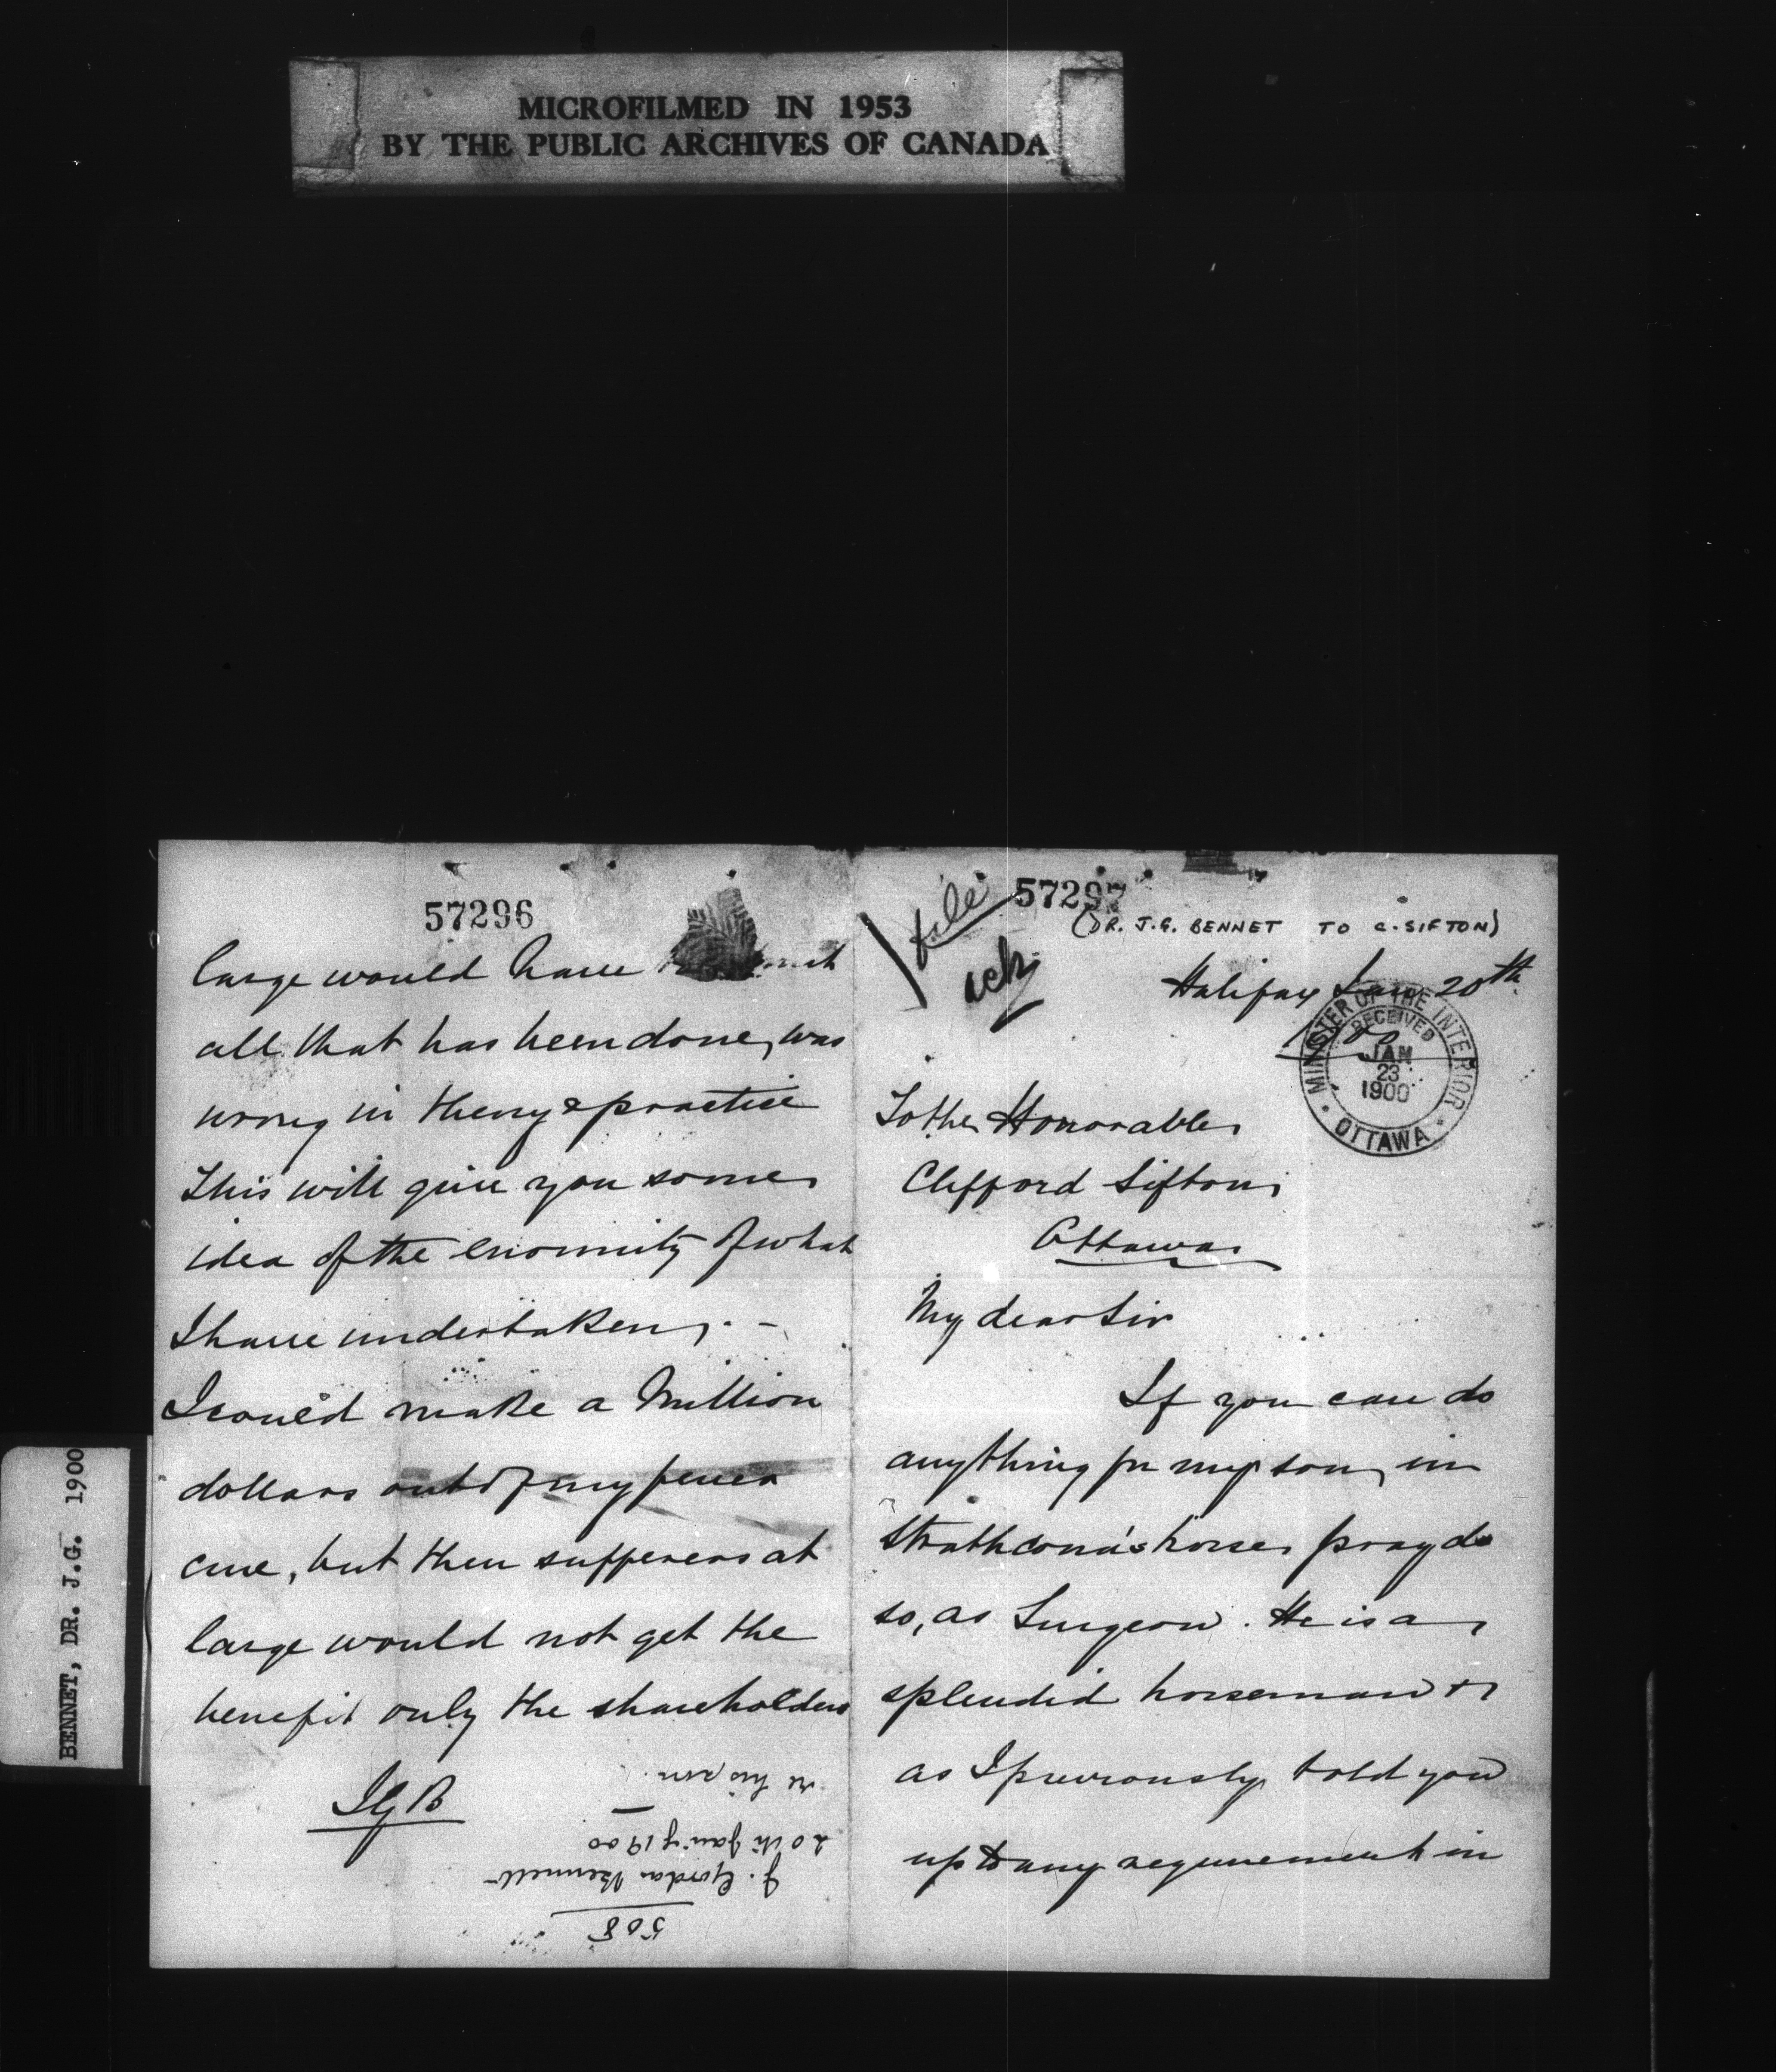 MICROFILMED IN 1953
BY THE PUBLIC ARCHIVES OF CANADA
BENNET, DR. J.G. 1900
57296
large would have
all that has been done, was
wrong in theory & practice
This will give you some
idea of the enormity of what
I have undertaken, -
I could make a Million
dollars out of my fever
cure, but then sufferers at
large would not get the
benefit only the shareholders
JGB
508
J. Gordon Bennett
20th Jany 1900
re his son.
57297
file
ack
(DR. J.G. BENNET TO C. SIFTON)
Halifax Jan 20th
1900
MINISTER OF THE INTERIOR
RECEIVED
JAN
23
1900
OTTAWA
To the Honorable
Clifford Sifton
Ottawa
My dear Sir
If you can do
anything for my son, in
Strathcona's horse, pray do
so, as Surgeon. He is a
splendid horseman &
as I previously told you
up to any requirement in